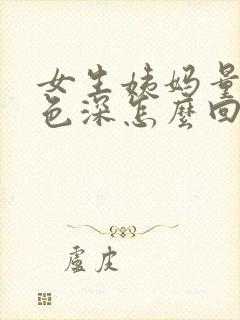 女生姨妈量
色深怎麼回
盧皮